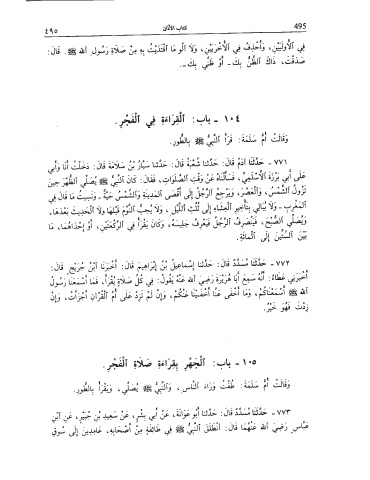 495 كتاب الأذان ٤٩٥
فِي الْأُولَيَيْنِ، وَأَحْذِفُ فِي الْأُخْرَيَيْنِ، وَلَا آلُو مَا اقْتَدَيْتُ بِهِ مِنْ صَلَاةِ رَسُولِ اللهِ ﷺ. قَالَ:
صَدَقْتَ، ذَاكَ الظَّنُّ بِكَ - أَوْ ظَنِّي بِكَ -.
١٠٤ - باب: الْقِرَاءَةِ فِي الْفَجْرِ.
وَقَالَتْ أُمُّ سَلَمَةَ: قَرَأَ النَّبِيُّ ﷺ بِالطُّورِ.
٧٧١ - حَدَّثَنَا آدَمُ قَالَ: حَدَّثَنَا شُعْبَةُ قَالَ: حَدَّثَنَا سَيَّارُ بْنُ سَلَامَةَ قَالَ: دَخَلْتُ أَنَا وَأَبِي
عَلَى أَبِي بَرْزَةَ الْأَسْلَمِيِّ، فَسَأَلْنَاهُ عَنْ وَقْتِ الصَّلَوَاتِ، فَقَالَ: كَانَ النَّبِيُّ ﷺ يُصَلِّي الظُّهْرَ حِينَ
تَزُولُ الشَّمْسُ، وَالْعَصْرَ، وَيَرْجِعُ الرَّجُلُ إِلَى أَقْصَى الْمَدِينَةِ وَالشَّمْسُ حَيَّةٌ، وَنَسِيتُ مَا قَالَ فِي
الْمَغْرِبِ، وَلَا يُبَالِي بِتَأْخِيرِ الْعِشَاءِ إِلَى ثُلُثِ اللَّيْلِ، وَلَا يُحِبُّ النَّوْمَ قَبْلَهَا وَلَا الْحَدِيثَ بَعْدَهَا،
وَيُصَلِّي الصُّبْحَ، فَيَنْصَرِفُ الرَّجُلُ فَيَعْرِفُ جَلِيسَهُ، وَكَانَ يَقْرَأُ فِي الرَّكْعَتَيْنِ، أَوْ إِحْدَاهُمَا، مَا
بَيْنَ السِّتِّينَ إِلَى الْمِائَةِ.
٧٧٢ - حَدَّثَنَا مُسَدَّدٌ قَالَ: حَدَّثَنَا إِسْمَاعِيلُ بْنُ إِبْرَاهِيمَ قَالَ: أَخْبَرَنَا ابْنُ جُرَيْجٍ قَالَ:
أَخْبَرَنِي عَطَاءٌ: أَنَّهُ سَمِعَ أَبَا هُرَيْرَةَ رَضِيَ اللهُ عَنْهُ يَقُولُ: فِي كُلِّ صَلَاةٍ يُقْرَأُ، فَمَا أَسْمَعَنَا رَسُولُ
اللهِ ﷺ أَسْمَعْنَاكُمْ، وَمَا أَخْفَى عَنَّا أَخْفَيْنَا عَنْكُمْ، وَإِنْ لَمْ تَزِدْ عَلَى أُمِّ الْقُرْآنِ أَجْزَأَتْ، وَإِنْ
زِدْتَ فَهُوَ خَيْرٌ.
١٠٥ - باب: الْجَهْرِ بِقِرَاءَةِ صَلَاةِ الْفَجْرِ.
وَقَالَتْ أُمُّ سَلَمَةَ: طُفْتُ وَرَاءَ النَّاسِ، وَالنَّبِيُّ ﷺ يُصَلِّي، وَيَقْرَأُ بِالطُّورِ.
٧٧٣ - حَدَّثَنَا مُسَدَّدٌ قَالَ: حَدَّثَنَا أَبُو عَوَانَةَ، عَنْ أَبِي بِشْرٍ، عَنْ سَعِيدِ بْنِ جُبَيْرٍ، عَنِ ابْنِ
عَبَّاسٍ رَضِيَ اللهُ عَنْهُمَا قَالَ: انْطَلَقَ النَّبِيُّ ﷺ فِي طَائِفَةٍ مِنْ أَصْحَابِهِ، عَامِدِينَ إِلَى سُوقِ